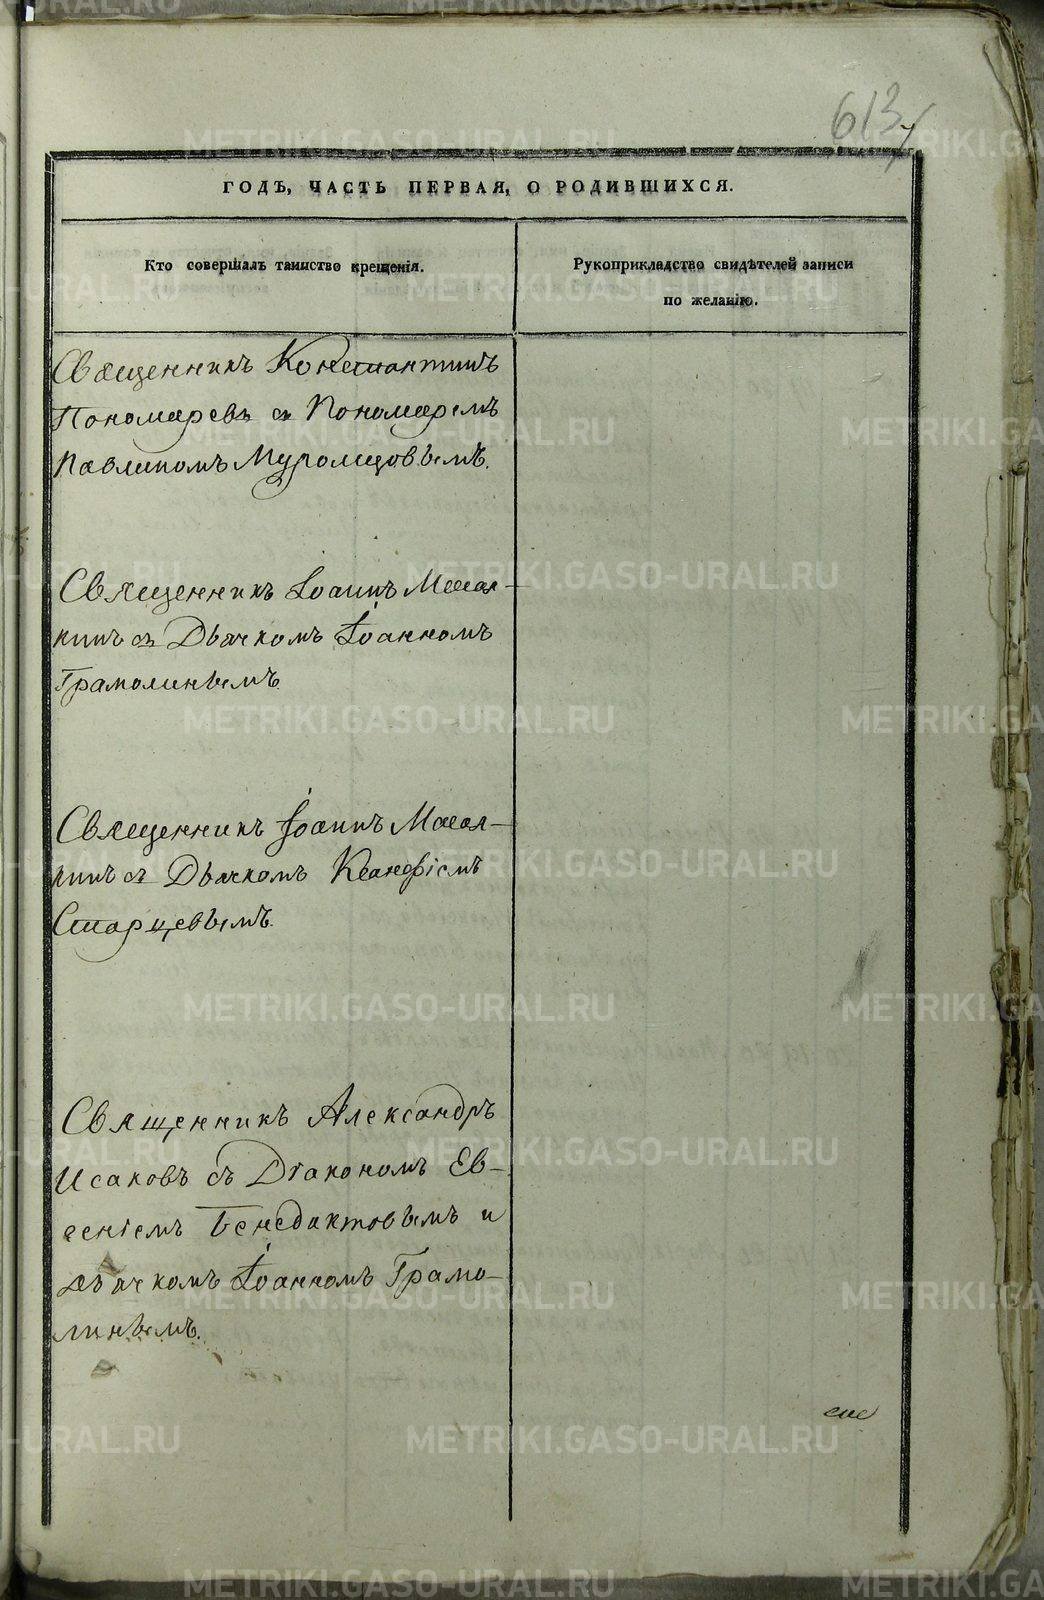 613
ГОДЪ, ЧАСТЬ ПЕРВАЯ, О РОДИВШИХСЯ.
Кто совершалъ таинство крещенія.
Рукоприкладство свидѣтелей записи
по желанію.
Священникъ Константинъ
Пономаревъ съ Пономаремъ
Павлиномъ Муромцовымъ.
Священникъ Іоаннъ Масал-
кинъ съ Дьячкомъ Іоанномъ
Грамолинымъ.
Священникъ Іоаннъ Масал-
кинъ съ Дьячкомъ Ксанофіемъ
Старцевымъ.
Священникъ Александръ
Исаковъ съ Діакономъ Ев-
геніемъ Бенедиктовымъ и
дьячкомъ Іоанномъ Грамо-
линымъ.
METRIKI.GASO-URAL.RU